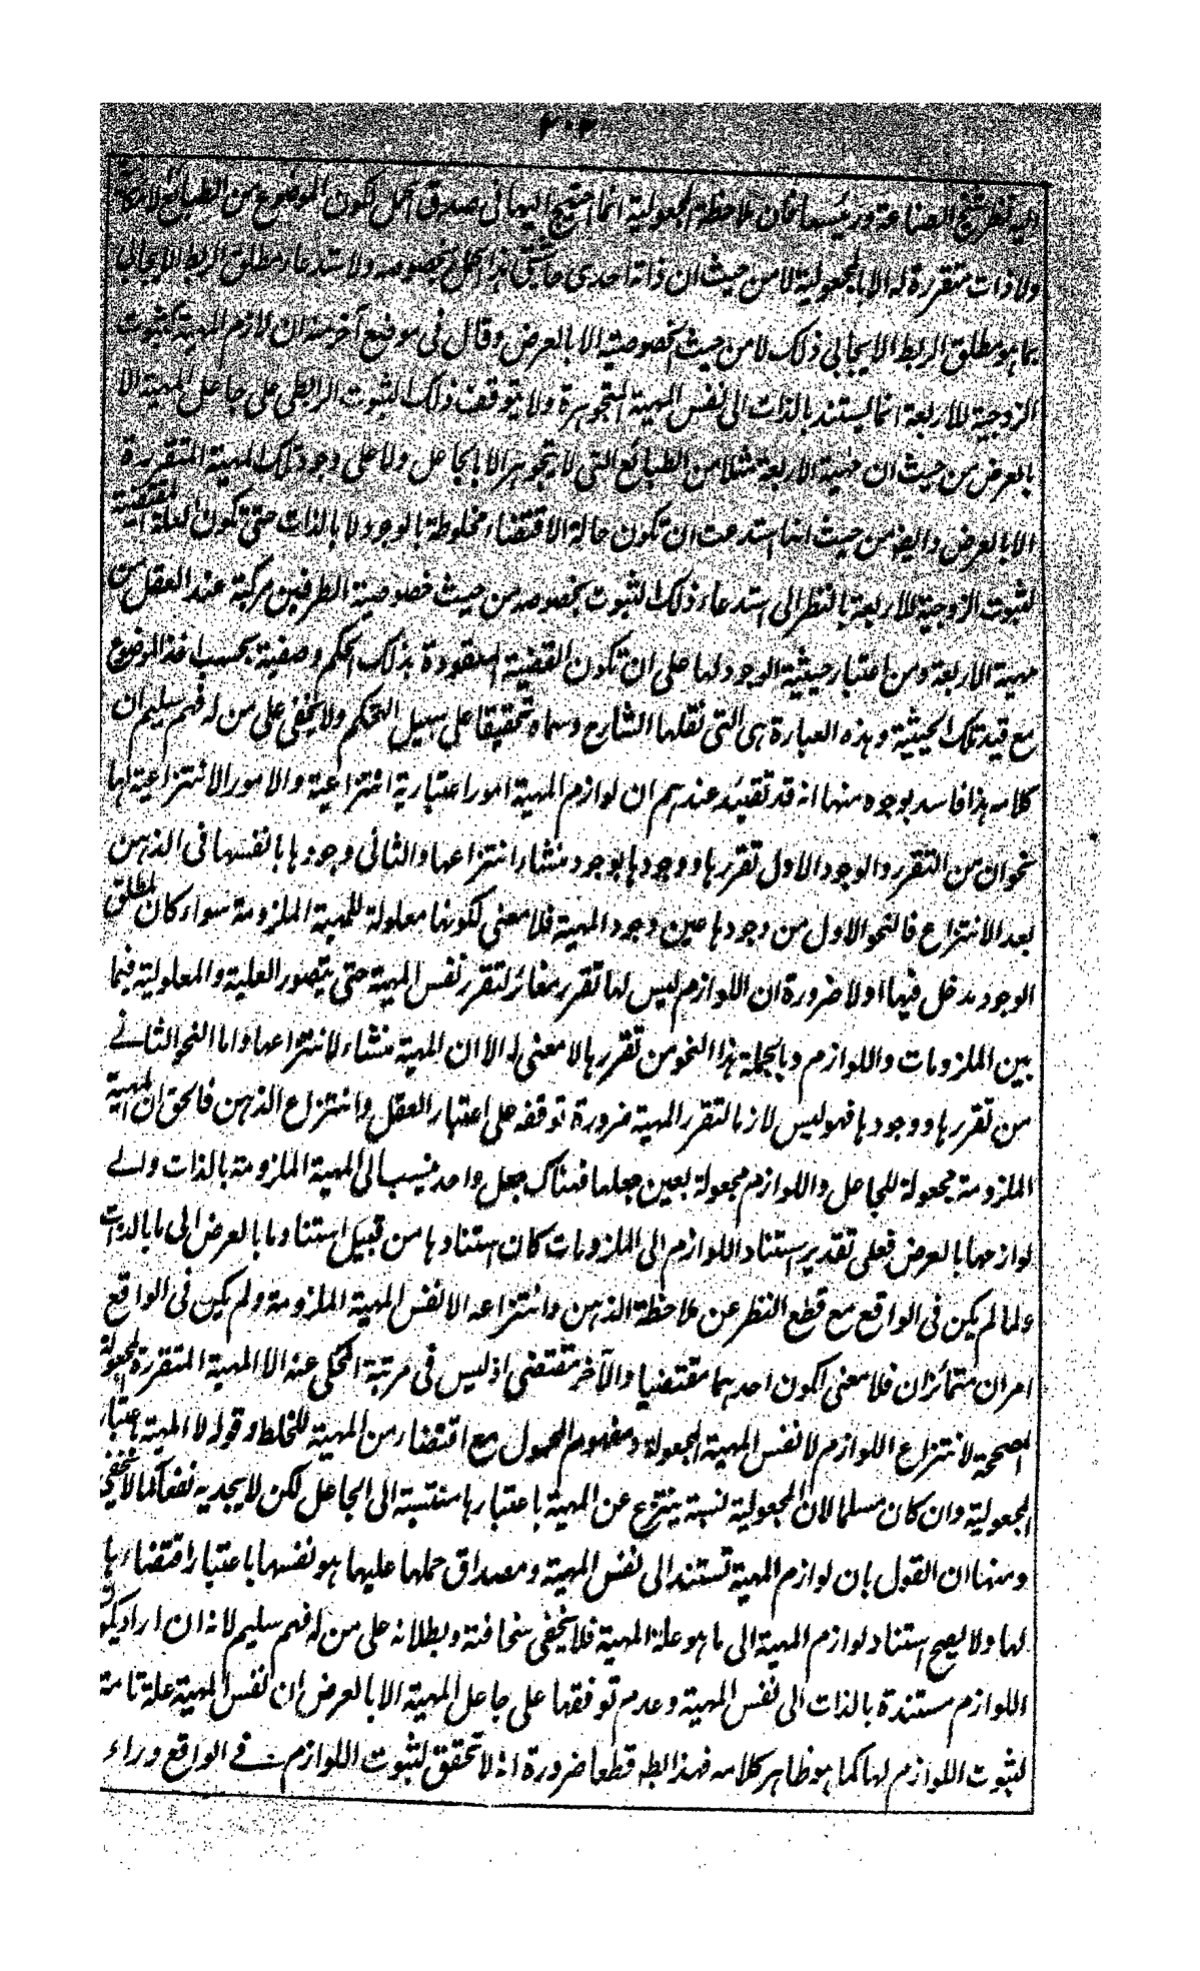 ٢٠٢
اليه نظر شيخ الصناعة ورئيسها فان ملاحظة المجعولية انما احتيج اليها في صدق الحمل لكون الموضوع من الطبائع الامكانية
ولا ذات متقررة له الا بالمجعولية لا من حيث ان ذاته احدى حاشيتي هذا الحمل بخصوصه ولاستدعاء مطلق الربط الايجابي
بما هو مطلق الربط الايجابي ذلك لا من حيث الخصوصية الا بالعرض وقال في موضع آخر منه ان لازم المهية كثبوت
الزوجية للاربعة انما يستند بالذات الى نفس المهية المتجوهرة ولا يتوقف ذلك الثبوت الرابطي على جاعل المهية الا
بالعرض من حيث ان مهية الاربعة مثلا من الطبائع التي لا تتجوهر الا بالجاعل ولا على وجود تلك المهية المتقررة
الا بالعرض وايضا من حيث انها استدعت ان تكون حالة الاقتضاء مخلوطة بالوجود لا بالذات حتى تكون العلة المقتضية
لثبوت الزوجية للاربعة بالنظر الى استدعاء ذلك الثبوت بخصوصه من حيث خصوصية الطرفين مركبة عند العقل من
مهية الاربعة ومن اعتبار حيثية الوجود لها على ان تكون القضية المعقودة بذلك الحكم وصفية بحسب اخذ الموضوع
مع قيد تلك الحيثية وهذه العبارة هى التي نقلها الشارح وسماه تحقيقا على سبيل التهكم ولا يخفى على من له فهم سليم ان
كلامه هذا فاسد بوجوه منها انه قد عندهم ان لوازم المهية امور اعتبارية انتزاعية والامور الانتزاعية لها
نحوان من التقرر والوجود الاول تقررها ووجودها بوجود منشاء انتزاعها والثاني وجودها بانفسها في الذهن
بعد الانتزاع فالنحو الاول من وجودها عين وجود المهية فلا معنى لكونها معلولة للمهية الملزومة سواء كان لمطلق
الوجود مدخل فيها اولا ضرورة ان اللوازم ليس لها تقرر مغائر لتقرر نفس المهية حتى يتصور العلية والمعلولية فيما
بين الملزومات واللوازم وبالجملة هذا النحو من تقررها لا معنى له الا ان المهية منشاء لانتزاعها واما النحو الثاني
من تقررها ووجودها فهو ليس لازما لتقرر المهية ضرورة توقفه على اعتبار العقل وانتزاع الذهن فالحق ان المهية
الملزومة مجعولة للجاعل واللوازم مجعولة بعين جعلها فهناك جعل واحد ينسب الى المهية الملزومة بالذات والى
لوازمها بالعرض فعلى تقدير استناد اللوازم الى الملزومات كان استنادها من قبيل استناد ما بالعرض الى ما بالذات
ولما لم يكن في الواقع مع قطع النظر عن ملاحظة الذهن وانتزاعه الا نفس المهية الملزومة ولم يكن في الواقع
امران متمائزان فلا معنى لكون احدهما مقتضيا والآخر مقتضى اذ ليس في مرتبة المحكى عنه الا المهية المتقررة المجعولة
المصححة لانتزاع اللوازم لا نفس المهية المجعولة ومفهوم المحمول مع اقتضاء من المهية للخلط وقوله لا المهية باعتبار
المجعولية وان كان مسلما لان المجعولية نسبة ينتزع عن المهية باعتبارها منتسبة الى الجاعل لكن لا يجديه نفعا كما لا يخفى
ومنها ان القول بان لوازم المهية تستند الى نفس المهية ومصداق حملها عليها هو نفسها باعتبار اقتضاءها
لها ولا يصح استناد لوازم المهية الى ما هو علة المهية فلا يخفى سخافته وبطلانه على من له فهم سليم لانه ان اراد بكون
اللوازم مستندة بالذات الى نفس المهية وعدم توقفها على جاعل المهية الا بالعرض ان نفس المهية علة تامة
لثبوت اللوازم لها كما هو ظاهر كلامه فهذا بط قطعا ضرورة انه لا تحقق لثبوت اللوازم في الواقع وراء